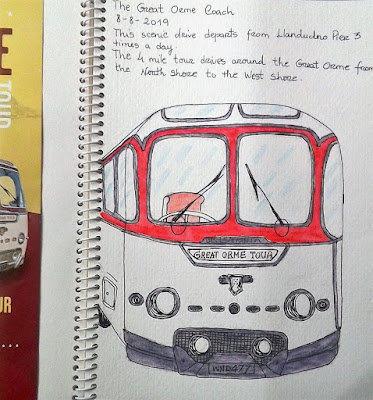 The Great Orme Coach
8-8-2019
This scenic drive departs from Llandudno Pier 3
times a day.
The 4 mile tour drives around the Great Orme from
the North Shore to the West Shore.
GREAT ORME TOUR
E
TOUR
UR